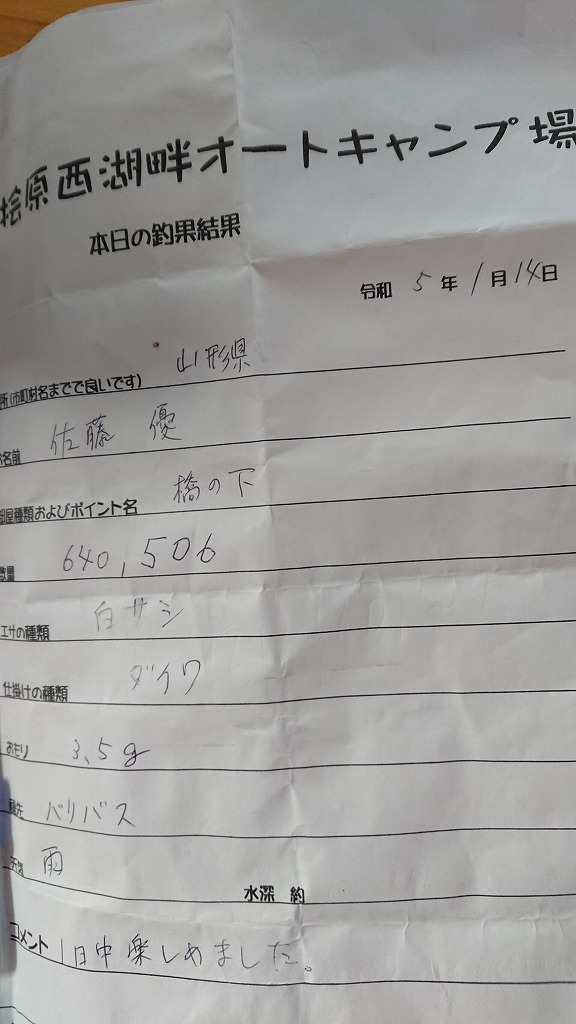 桧原西湖畔オートキャンプ場
本日の釣果結果
令和 5 年 1 月 14 日
所(市町村名までで良いです) 山形県
名前 佐藤 優
部屋種類およびポイント名 橋の下
数量 640,506
エサの種類 白サシ
仕掛けの種類 ダイワ
おもり 3.5g
穂先 バリバス
天気 雨
水深 約
コメント 1日中楽しめました。